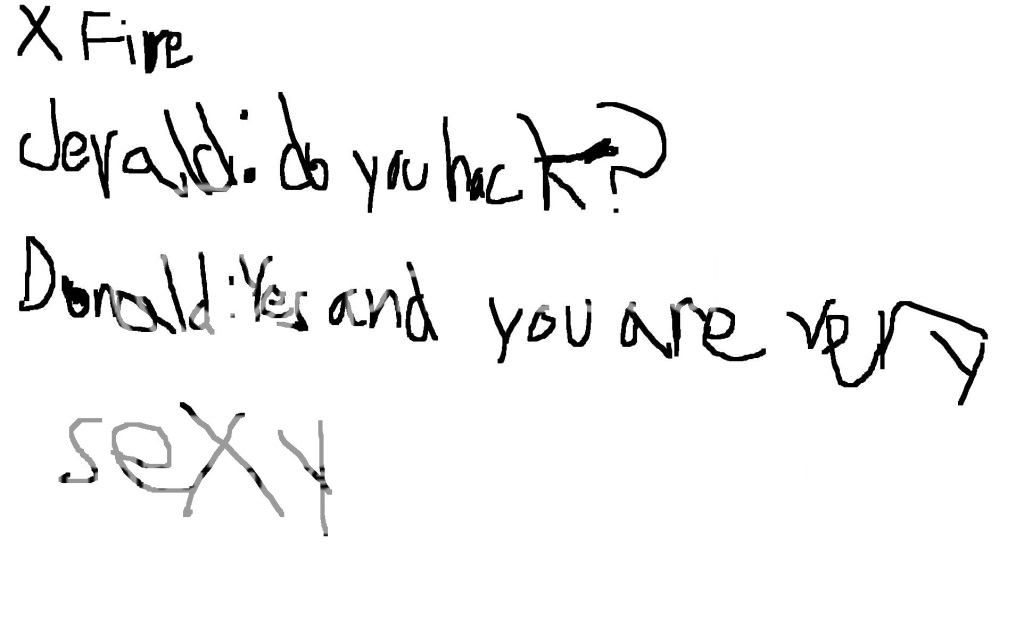 X Fire
Jerald: do you hack?
Donald: Yes and you are very
sexy